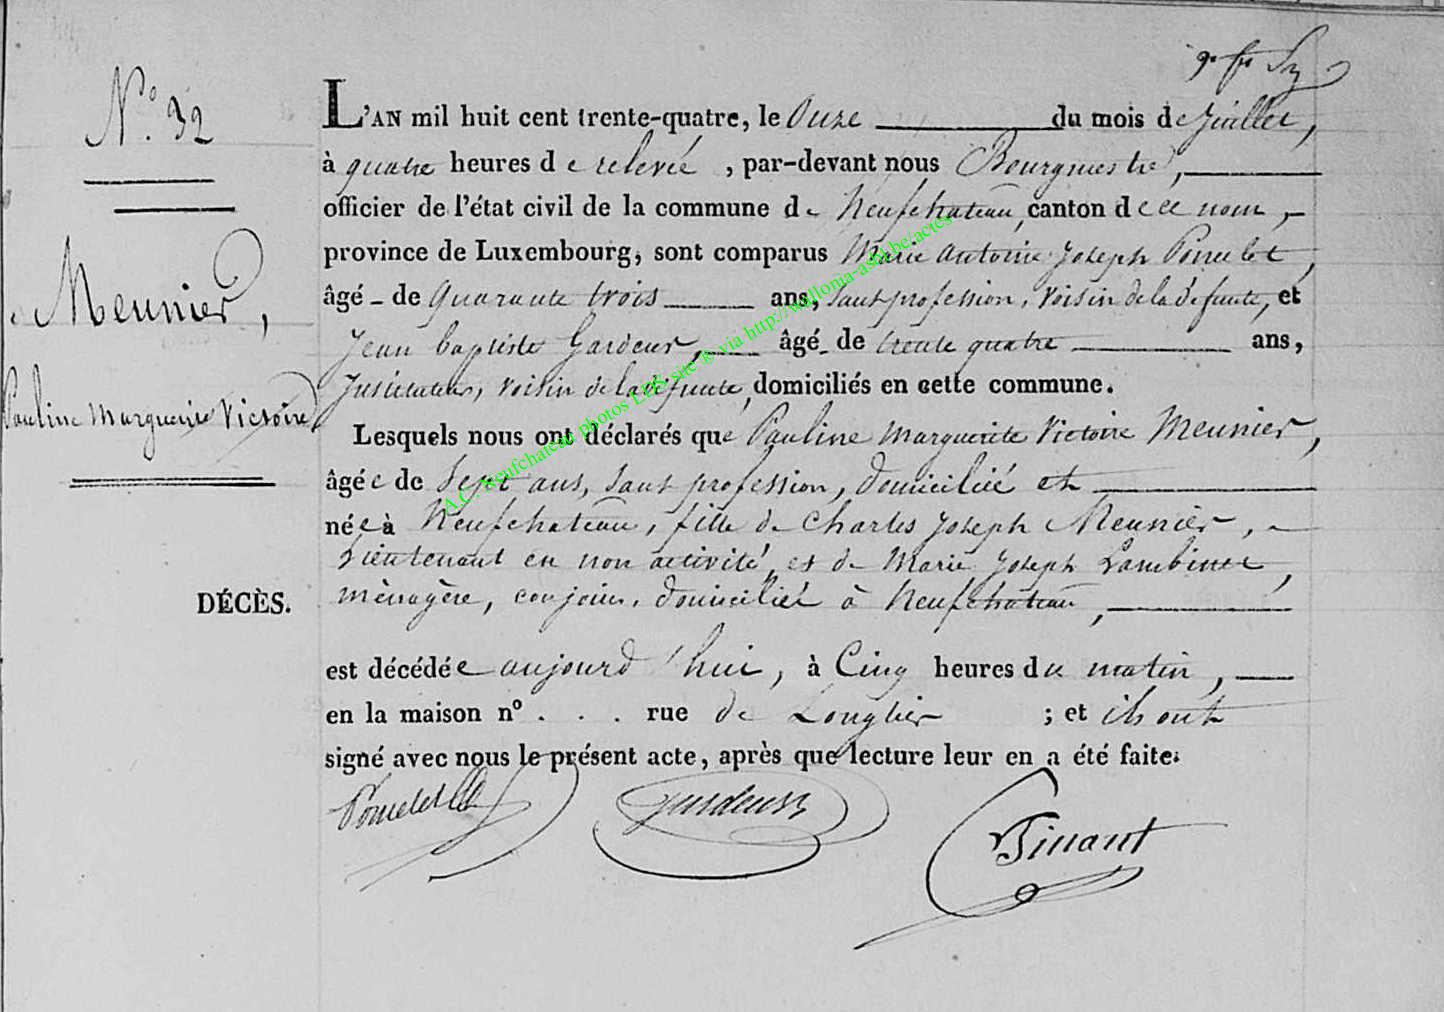 N.° 32
Meunier,
Pauline Marguerite Victoire
DÉCÈS.
L'AN mil huit cent trente-quatre, le Onze du mois de Juillet,
à quatre heures de relevée, par-devant nous Bourgmestre,
officier de l'état civil de la commune de Neufchateau, canton de ce nom,
province de Luxembourg, sont comparus Marie Antoine Joseph Poncelet,
âgé de Quarante trois ans, sans profession, voisin de la défunte, et
Jean baptiste Gardeur, âgé de trente quatre ans,
Instituteur, voisin de la défunte, domiciliés en cette commune.
Lesquels nous ont déclarés que Pauline Marguerite Victoire Meunier,
âgée de Sept ans, sans profession, domiciliée et
née à Neufchateau, fille de Charles Joseph Meunier,
Lieutenant en non activité, et de Marie Joseph Lambinet,
ménagère, conjoins, domiciliés à Neufchateau,
est décédée aujourd'hui, à Cinq heures du matin,
en la maison n° . . . rue de Longlier ; et ils ont
signé avec nous le présent acte, après que lecture leur en a été faite.
Poncelet Gardeur Tinant
A.C. Neufchateau photos LDS site ® via http://wallonia-asbl.be/actes